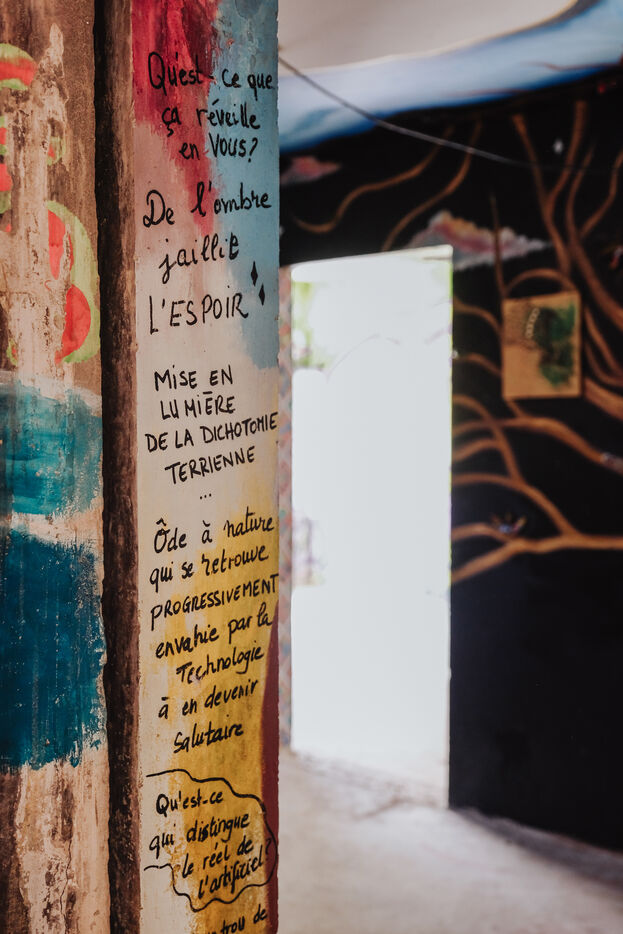 Qu'est-ce que
ça réveille
en VOUS?
De l'ombre
jaillit
L'ESPOIR
MISE EN
LUMIÈRE
DE LA DICHOTOMIE
TERRIENNE
...
Ôde à nature
qui se retrouve
PROGRESSIVEMENT
envahie par la
Technologie
à en devenir
Salutaire
Qu'est-ce
qui distingue
le réel de
l'artificiel?
trou de